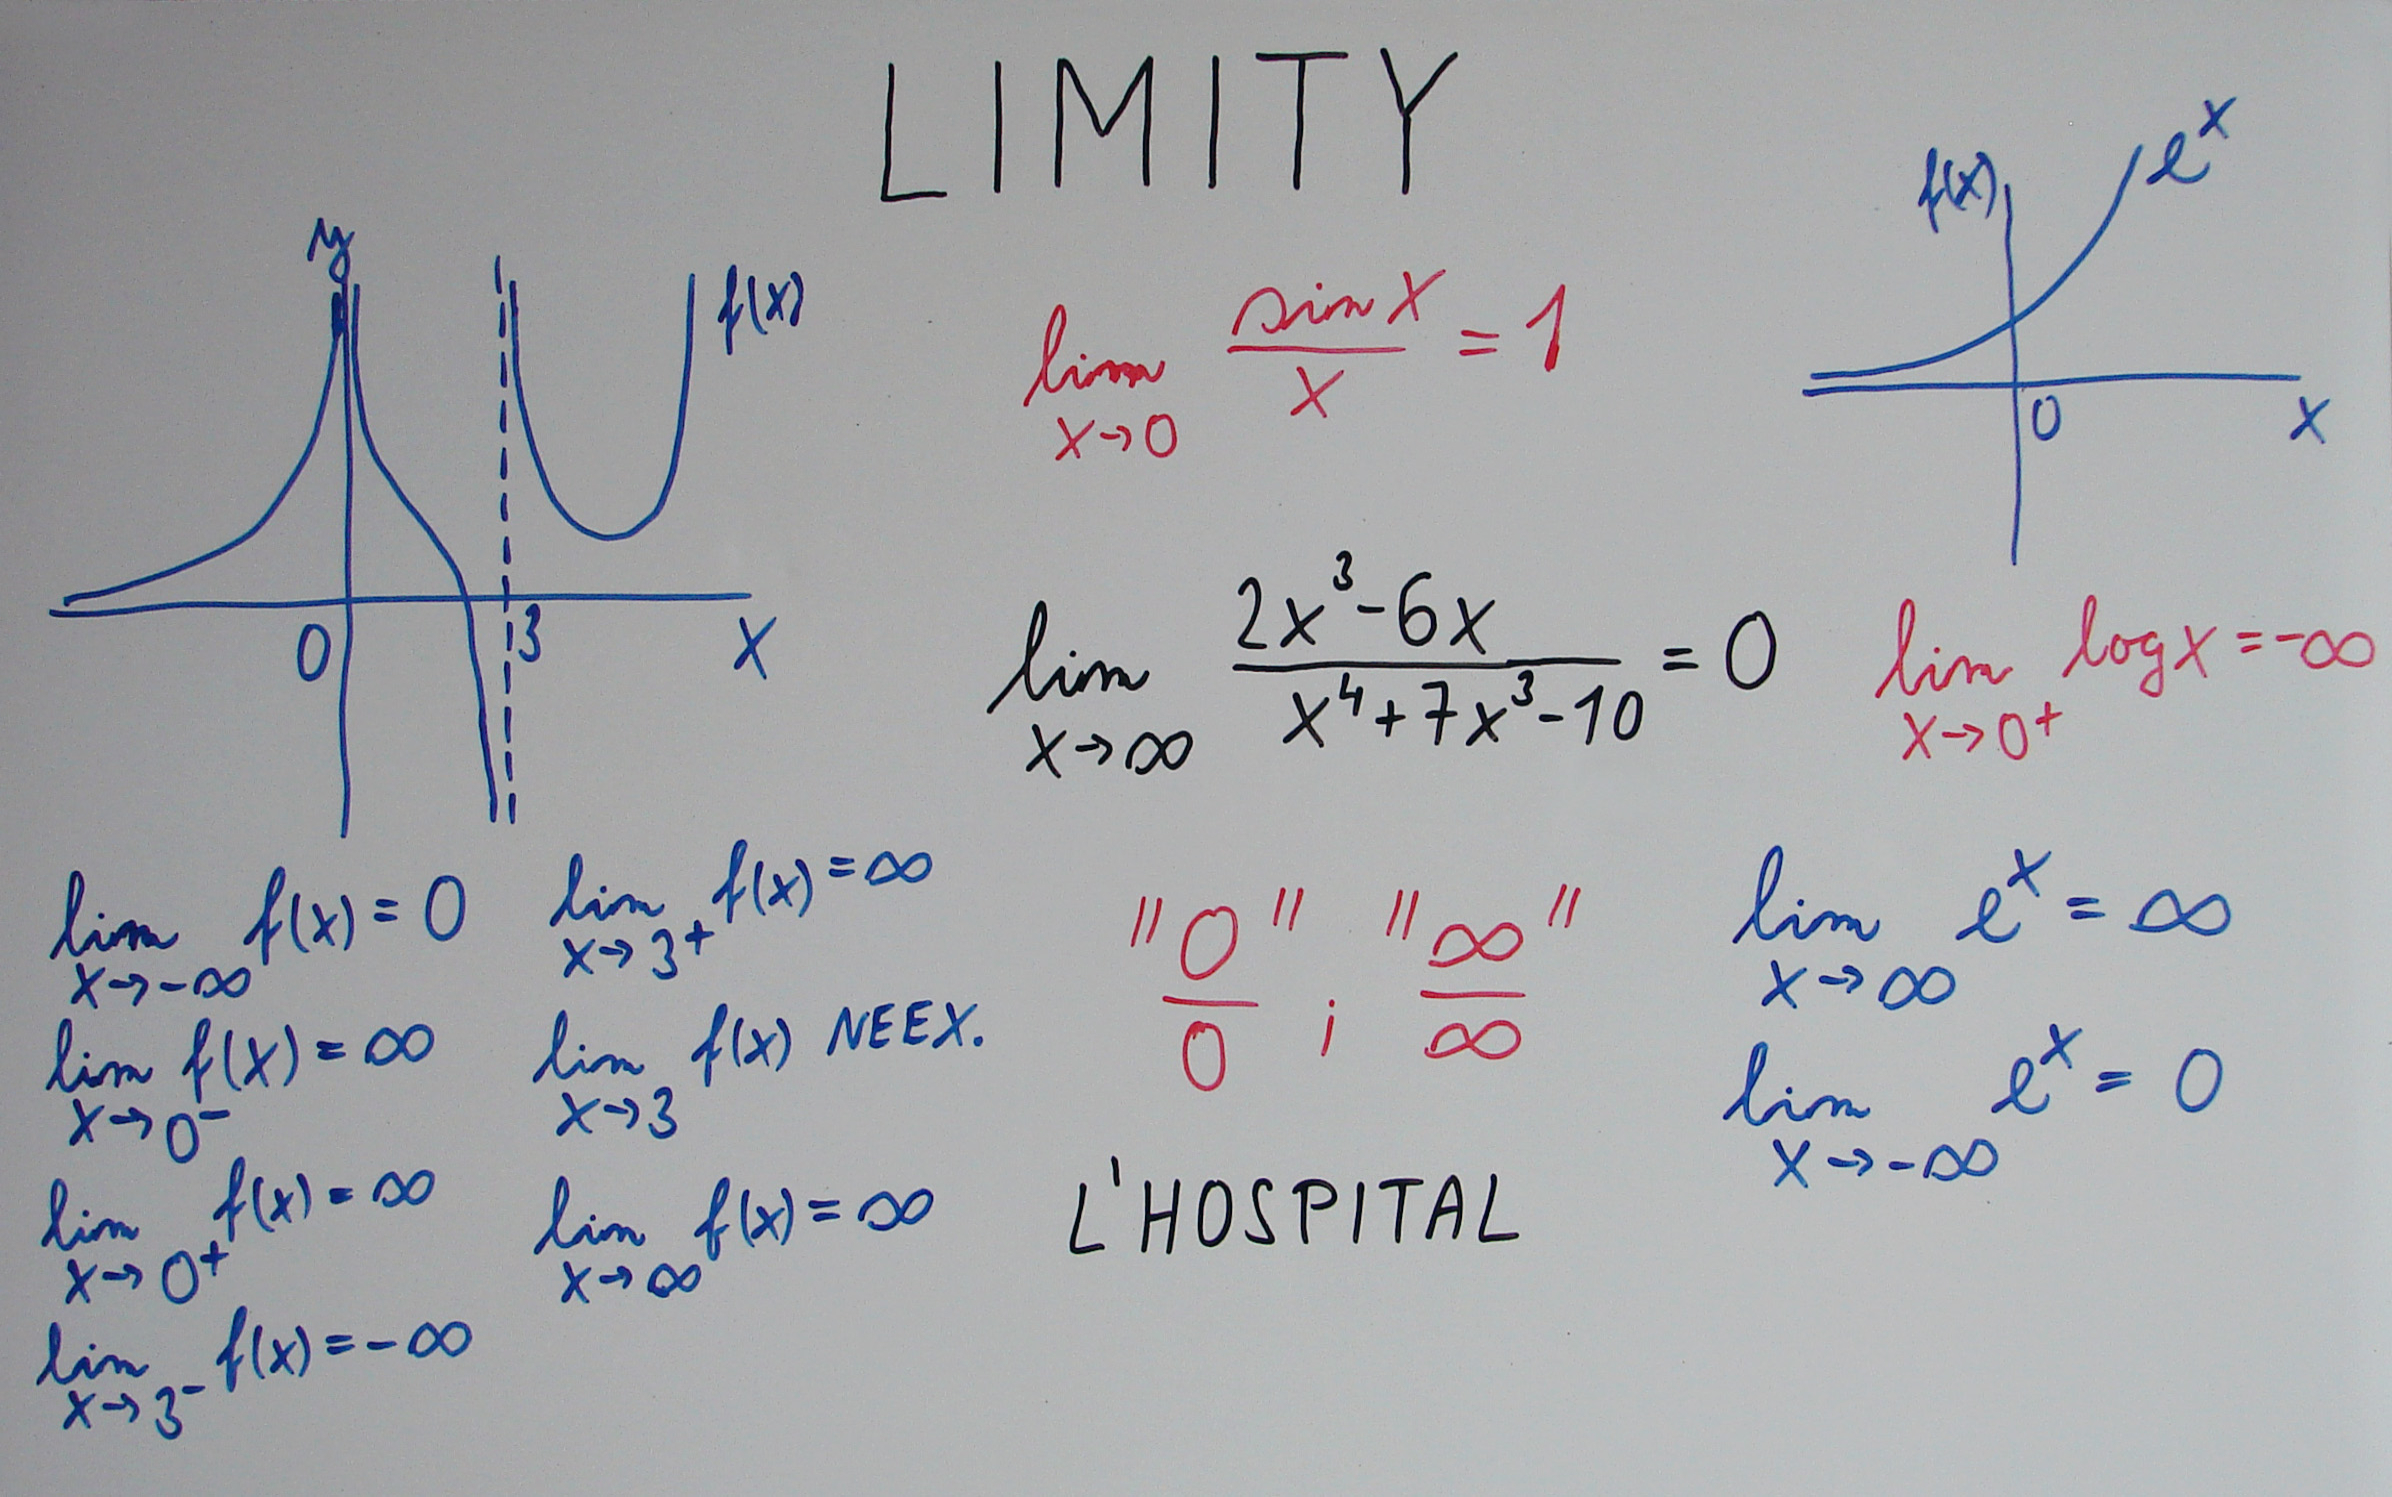 LIMITY
y
f(x)
0
3
x
lim x→0 sin x / x = 1
f(x)
e^x
0
x
lim x→∞ 2x³-6x / x⁴+7x³-10 = 0
lim x→0+ log x = -∞
lim x→-∞ f(x) = 0
lim x→0- f(x) = ∞
lim x→0+ f(x) = ∞
lim x→3- f(x) = -∞
lim x→3+ f(x) = ∞
lim x→3 f(x) NEEX.
lim x→∞ f(x) = ∞
"0/0" ; "∞/∞"
L'HOSPITAL
lim x→∞ e^x = ∞
lim x→-∞ e^x = 0